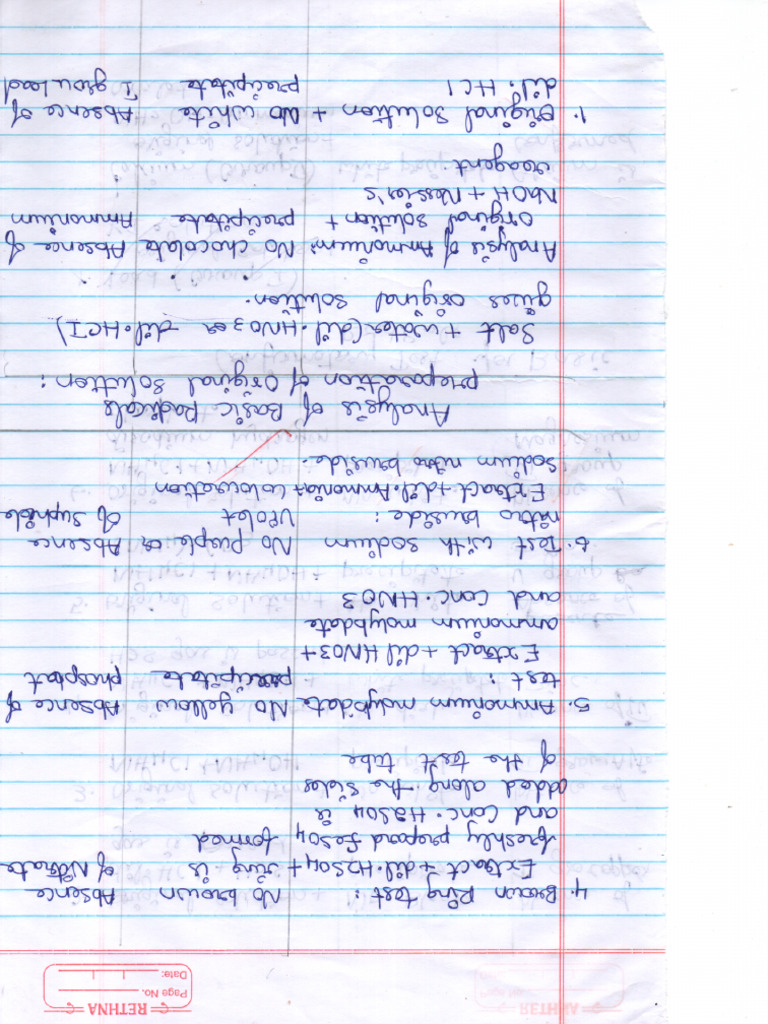 RETHNA
Page No.
Date:
4. Brown Ring test: No brown Absence
Extract + dil. H2SO4 + ring is of Nitrate
freshly prepared FeSO4 formed
and Conc. H2SO4 is
added along the sides
of the test tube
5. Ammonium molybdate No yellow Absence of
test: precipitate phosphat
Extract + dil HNO3 +
ammonium molybdate
and Conc. HNO3
6. Test with sodium No purple or Absence
nitro pruside: Violet of Sulphide
Extract + dil. Ammonia + colouration
Sodium nitro pruside.
Analysis of Basic Radicals
preparation of Original Solution:
Salt + water (dil. HNO3 or dil. HCI)
gives original Solution.
Analysis of Ammonium: No chocolate Absence of
Original Solution + precipitate Ammonium
NaOH + Nessler's
reagent
1. Original Solution + No white Absence of
dil. HCl precipitate I group Lead